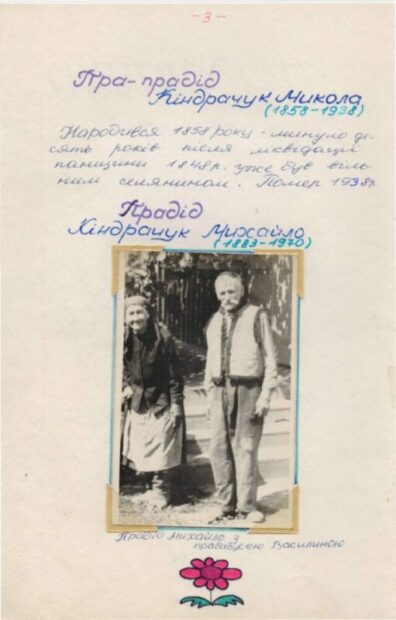 - 3 -
Пра-прадід
Кіндрачук Микола
(1858-1938)
Народився 1858 року - минуло де-
сять років після ліквідації
панщини 1848р. уже був віль-
ним селянином. Помер 1938р
Прадід
Кіндрачук Михайло
(1883-1970)
Прадід Михайло з
прабабусею Василиною